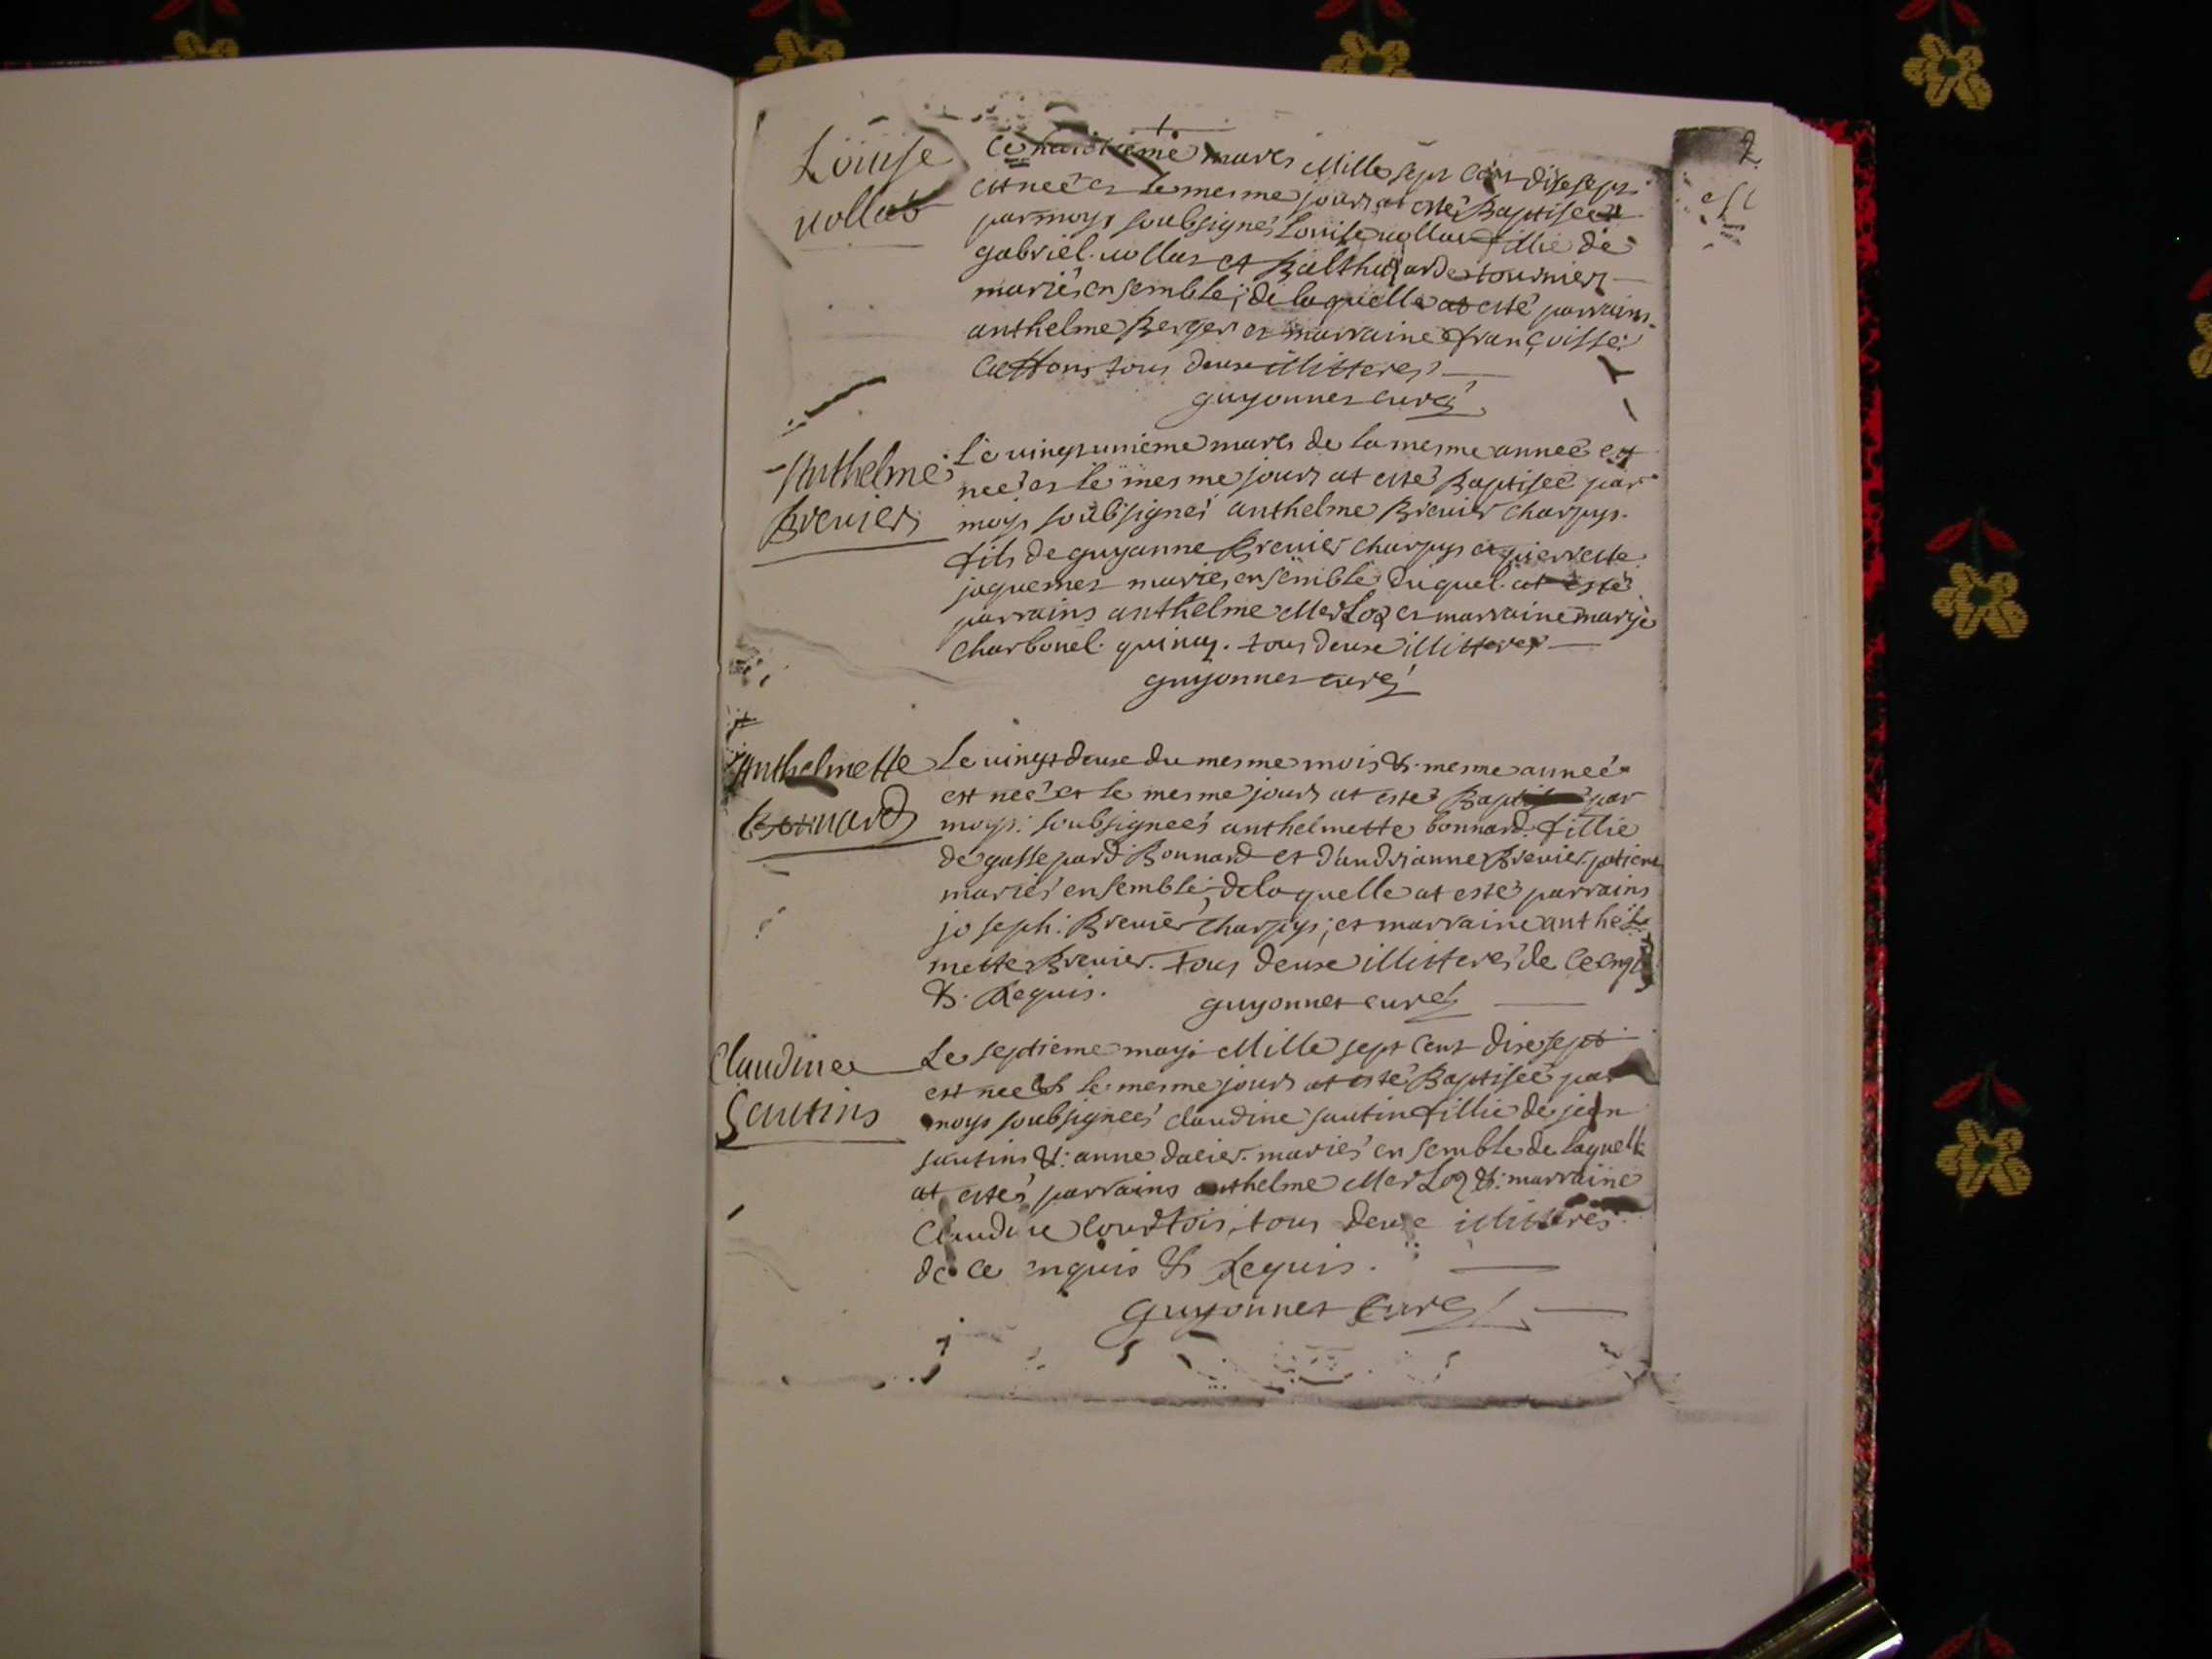 2
Louise
vollat
Le huictieme mars Mille sept cent disesept
est neé et le mesme jours at esté Baptiseé
par moys soubsigné Louise vollat fillie de
gabriel vollat et Balthasarde tournier
mariés ensemble, de laquelle at esté parrains
anthelme Berger et marraine françoisse
Cattons tous deuse illitteres
guyonnet curé
Anthelme
Brevier
Le vingt unieme mars de la mesme anneé est
neé et le mesme jours at esté Baptiseé par
moys soubsigné anthelme Brevier charpys
fils de guyanne Brevier charpys et pierrette
jaquemet mariés ensemble duquel at esté
parrains anthelme Merloz et marraine marye
charbonel quinay tous deuse illitteres
guyonnet curé
Anthelmette
bonnard
Le vingt deuse du mesme mois & mesme anneé
est neé et le mesme jours at esté par
moys soubsigneés anthelmette bonnard fillie
de gassepard Bonnard et d'andrianne Brevier
mariés ensemble, de laquelle at esté parrains
joseph Brevier charpys, et marraine anthel
mette Brevier tous deuse illitteres de ce
& Requis. guyonnet curé
Claudine
Sautins
Le septieme mays Mille sept cent disesept
est neé et le mesme jours at esté Baptiseé par
moys soubsigneés claudine sautin fillie de jean
sautins & anne dacier mariés ensemble de laquelle
at estés parrains anthelme Merloz & marraine
Claudine Courtois, tous deuse illitteres
de ce enquis & Requis.
guyonnet Curé